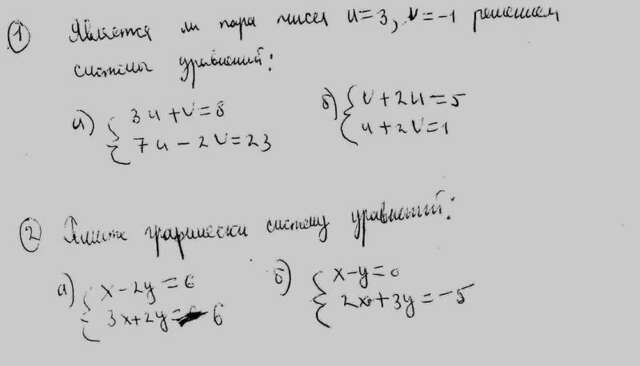 ① Является ли пара чисел u=3, v=-1 решением
системы уравнений:
а) { 3u+v=8
7u-2v=23
б) { v+2u=5
u+2v=1
② Решите графически систему уравнений:
а) { x-2y=6
3x+2y= 6
б) { x-y=0
2x+3y=-5